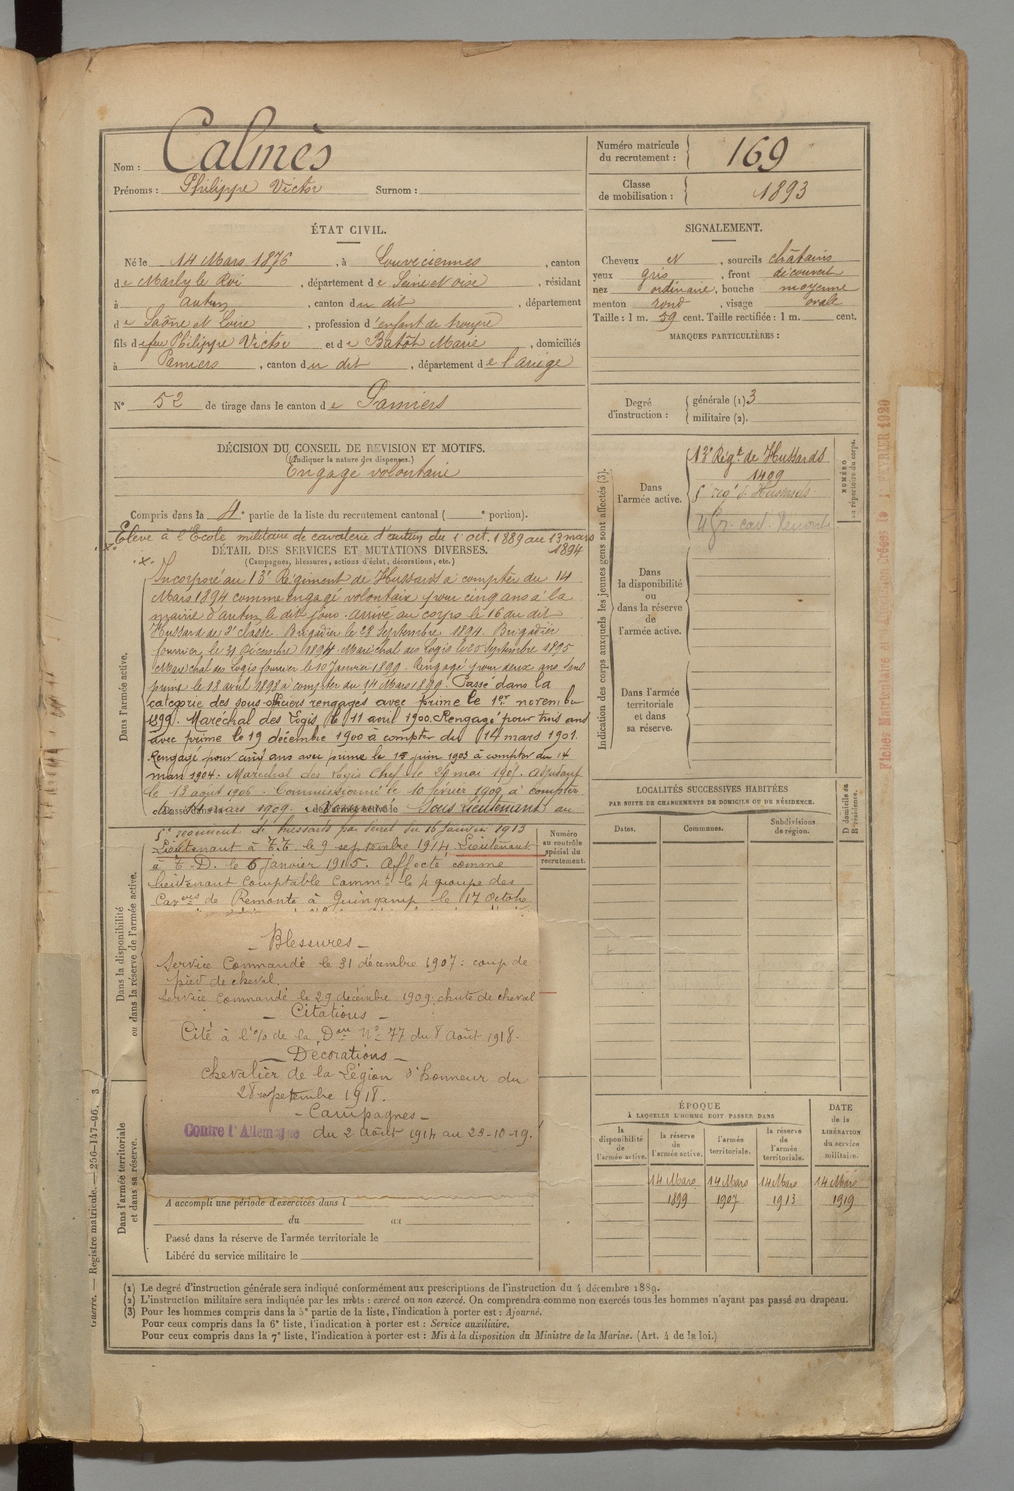 Nom : Calmès
Prénoms : Philippe Victor Surnom :
Numéro matricule du recrutement : 169
Classe de mobilisation : 1893
ÉTAT CIVIL.
Né le 14 Mars 1876, à Louveciennes, canton
de Marly le Roi, département de Seine et Oise, résidant
à autun, canton du dit, département
de Saône et Loire, profession d'enfant de troupe
fils de feu Philippe Victor et de Batôt Marie, domiciliés
à Pamiers, canton du dit, département de l'ariège
N° 52 de tirage dans le canton de Pamiers
SIGNALEMENT.
Cheveux N, sourcils châtains
yeux gris, front découvert
nez ordinaire, bouche moyenne
menton rond, visage ovale
Taille : 1 m. 59 cent. Taille rectifiée : 1 m. cent.
MARQUES PARTICULIÈRES :
Degré d'instruction : générale (1) 3
militaire (2).
DÉCISION DU CONSEIL DE REVISION ET MOTIFS.
(Indiquer la nature des dispenses.)
Engagé volontaire
Compris dans la 4e partie de la liste du recrutement cantonal ( e portion).
Élève à l'École militaire de cavalerie d'autun du 1 oct. 1889 au 13 mars
1894
DÉTAIL DES SERVICES ET MUTATIONS DIVERSES.
(Campagnes, blessures, actions d'éclat, décorations, etc.)
Dans l'armée active.
Incorporé au 13e Régiment de Hussards à compter du 14
Mars 1894 comme engagé volontaire pour cinq ans à la
mairie d'autun le dit jour. arrivé au corps le 16 du dit
Hussard de 2e classe. Brigadier le 28 Septembre 1894. Brigadier
fourrier le 31 Décembre 1894. Maréchal des Logis le 25 Septembre 1895
Maréchal des Logis fourrier le 10 Janvier 1899. Rengagé pour deux ans sans
prime le 18 avril 1898 à compter du 14 Mars 1899. Passé dans la
catégorie des sous-officiers rengagés avec prime le 1er novembre
1899. Maréchal des Logis le 11 avril 1900. Rengagé pour trois ans
avec prime le 19 décembre 1900 à compter du 14 mars 1901.
Rengagé pour cinq ans avec prime le 15 juin 1903 à compter du 14
mars 1904. Maréchal des Logis Chef le 26 mai 1905. adjudant
le 13 août 1906. Commissionné le 10 février 1909 à compter
du 14 mars 1909. Nommé Sous Lieutenant au
régiment de hussards par décret du 16 Janvier 1913
Lieutenant à T.T. le 9 septembre 1914 Lieutenant
à T.D. le 6 janvier 1915. Affecté comme
lieutenant comptable Commt le 4 groupe des
Carres de Remonte à Guingamp le 17 Octobre
Dans la disponibilité ou dans la réserve de l'armée active.
Numéro au contrôle spécial du recrutement.
- Blessures -
Service Commandé le 31 décembre 1907 : coup de
pied de cheval.
Service Commandé le 29 décembre 1909 : chute de cheval
- Citations -
Cité à l'o/o de la Don No 77 du 8 Août 1918.
- Décorations -
chevalier de la Légion d'honneur du
28 septembre 1918.
- Campagnes -
Contre l'Allemagne du 2 août 1914 au 23-10-19.
Dans l'armée territoriale et dans sa réserve.
A accompli une période d'exercices dans l
du au
Passé dans la réserve de l'armée territoriale le
Libéré du service militaire le
Indication des corps auxquels les jeunes gens sont affectés (3).
Dans l'armée active.
13e Régt de Hussards
1409
NUMÉRO au répertoire du corps.
Dans la disponibilité ou dans la réserve de l'armée active.
Dans l'armée territoriale et dans sa réserve.
LOCALITÉS SUCCESSIVES HABITÉES
PAR SUITE DE CHANGEMENTS DE DOMICILE OU DE RÉSIDENCE.
Dates. Communes. Subdivisions de région. D domicile ou R résidence.
ÉPOQUE
À LAQUELLE L'HOMME DOIT PASSER DANS
DATE de la LIBÉRATION du service militaire.
la disponibilité de l'armée active. la réserve de l'armée active. l'armée territoriale. la réserve de l'armée territoriale.
14 Mars 1899 14 Mars 1907 14 Mars 1913 14 Mars 1919
(1) Le degré d'instruction générale sera indiqué conformément aux prescriptions de l'instruction du 4 décembre 1889.
(2) L'instruction militaire sera indiquée par les mots : exercé ou non exercé. On comprendra comme non exercés tous les hommes n'ayant pas passé au drapeau.
(3) Pour les hommes compris dans la 5e partie de la liste, l'indication à porter est : Ajourné.
Pour ceux compris dans la 6e liste, l'indication à porter est : Service auxiliaire.
Pour ceux compris dans la 7e liste, l'indication à porter est : Mis à la disposition du Ministre de la Marine. (Art. 4 de la loi.)
Guerre. — Registre matricule. — 256-147-96. 3